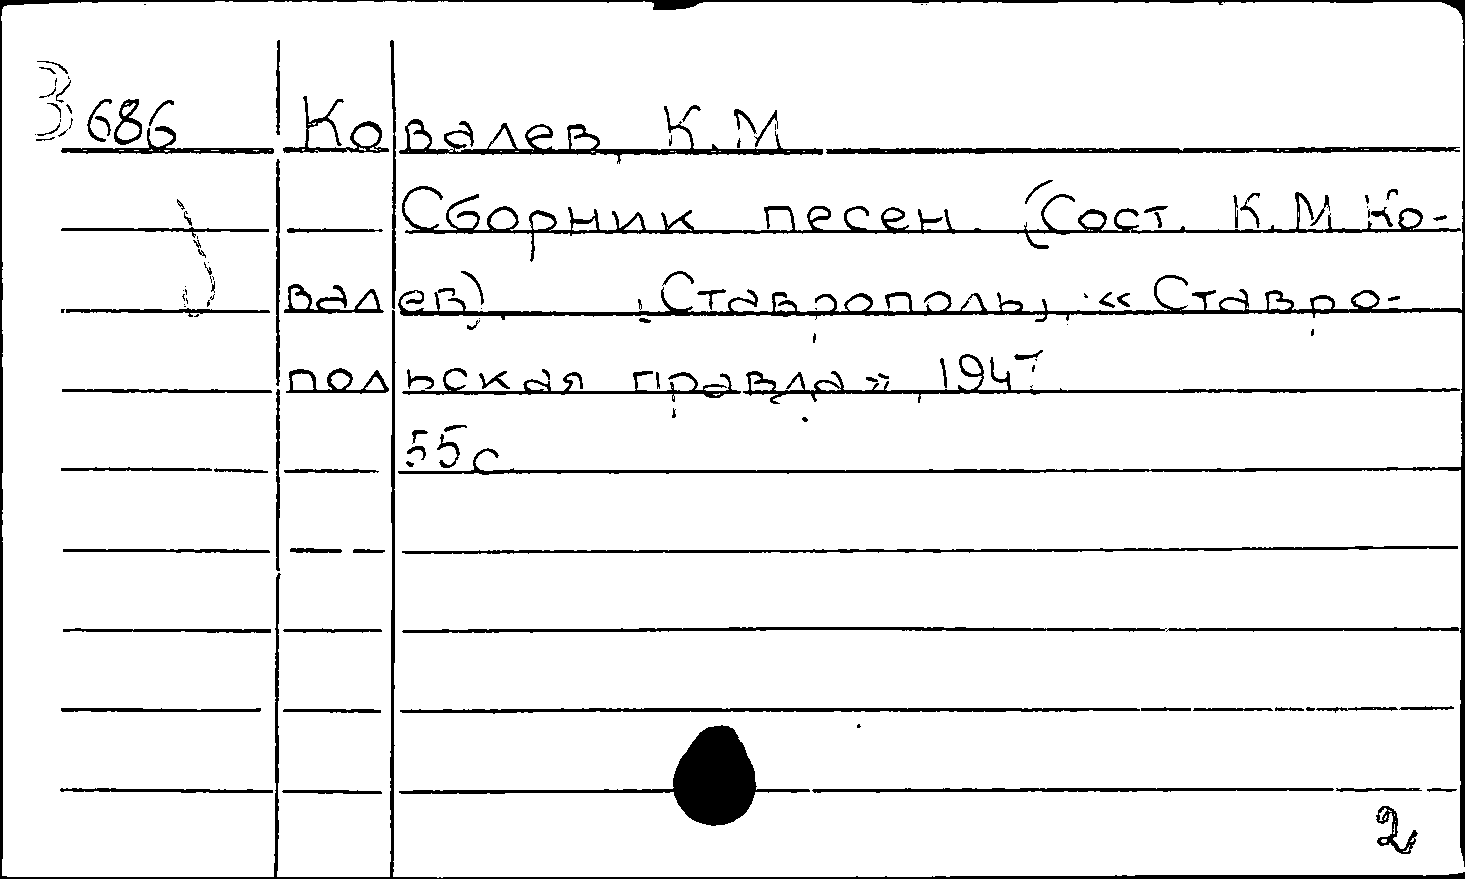 3 686 Ковалев, К.М
Сборник песен. (Сост. К.М Ко-
валев). [Ставрополь], «Ставро-
польская правда», 1947.
55 с
2